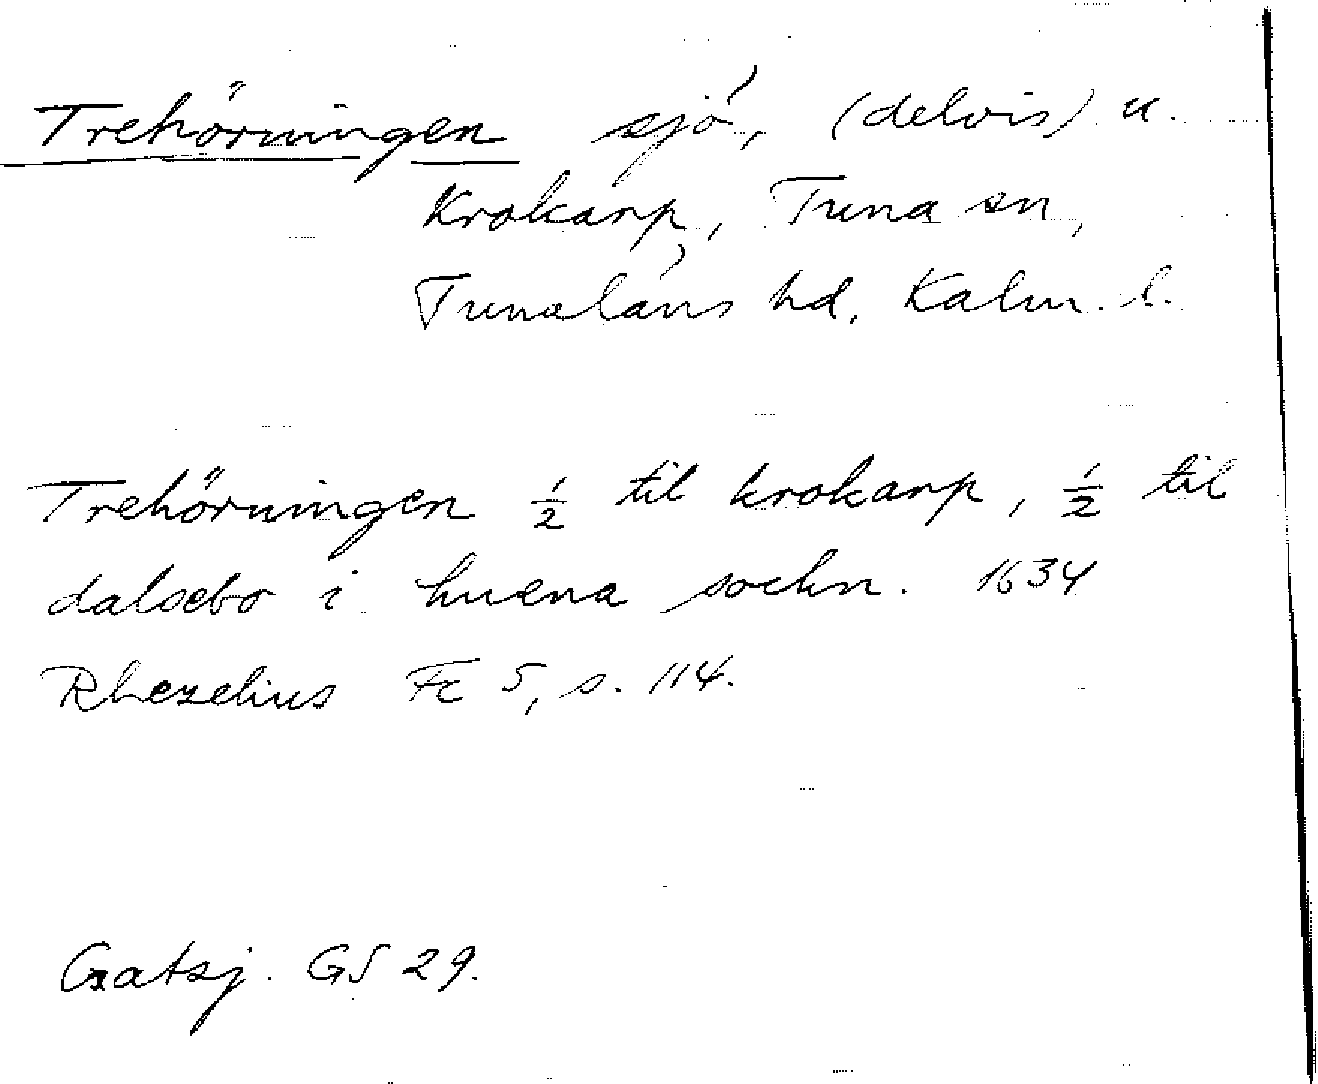 Trehörningen sjö, (delvis) u.
Krokarp, Tuna sn,
Tunaläns hd, Kalm. l.
Trehörningen ½ til krokarp, ½ til
dalsebo i huena sockn. 1634
Rhezelius Fc 5, s. 114.
Gatsj. GS 29.